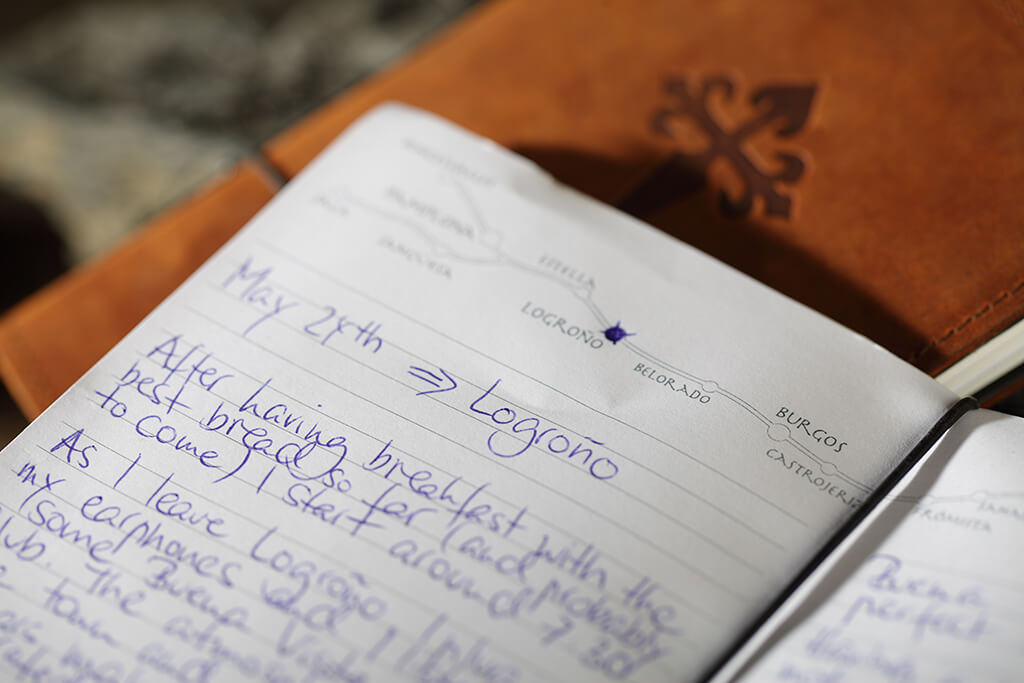 PAMPLONA
SANGÜESA
ESTELLA
LOGROÑO
BELORADO
BURGOS
CASTROJERIZ
FRÓMISTA
May 24th ⇒ Logroño
After having breakfast with the
best bread so far (and probably
to come) I start around 7.30
As I leave Logroño I
my earphones and
(some Buena Vista
Club. The
town and
Buena
perfect